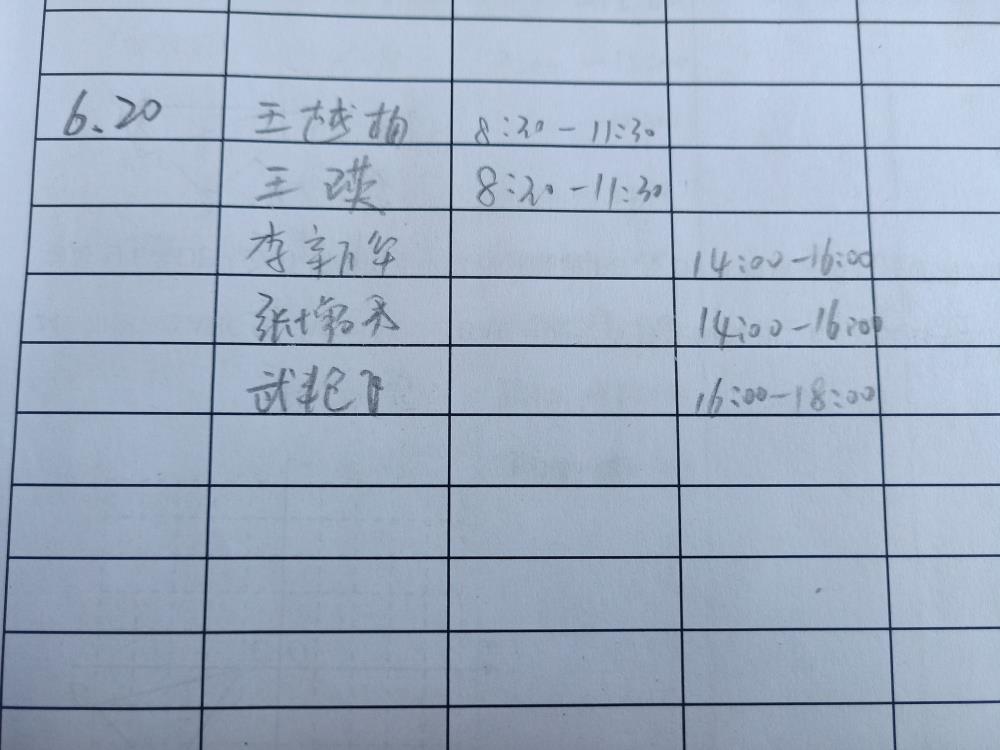 6.20 王越柏 8:30-11:30
王瑛 8:30-11:30
李新华 14:00-16:00
张 14:00-16:00
武艳 16:00-18:00